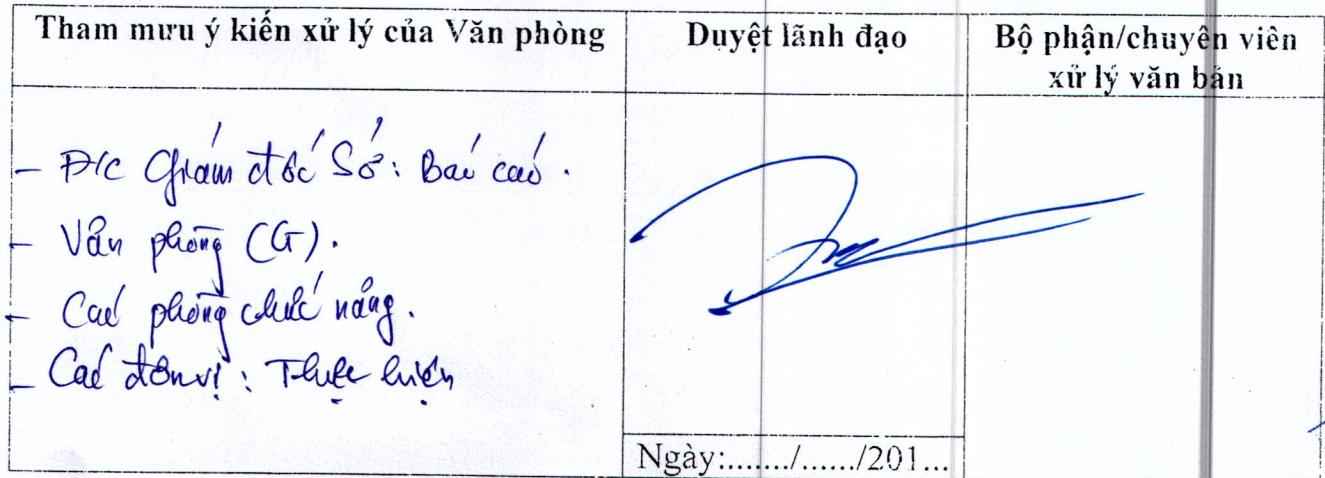 Tham mưu ý kiến xử lý của Văn phòng
Duyệt lãnh đạo
Bộ phận/chuyên viên
xử lý văn bản
- Đ/c Giám đốc Sở: Báo cáo.
- Văn phòng (G).
- Các phòng chức năng.
- Các đơn vị: Thực hiện
Ngày:......./....../201...